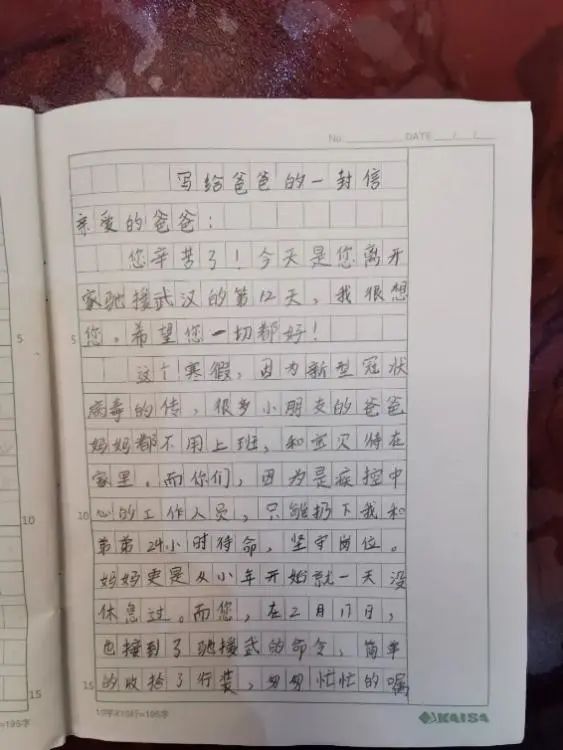 No DATE / /
写给爸爸的一封信
亲爱的爸爸：
您辛苦了！今天是您离开
家驰援武汉的第12天，我很想
5 5 您。希望您一切都好！
这个寒假，因为新型冠状
病毒的传，很多小朋友的爸爸
妈妈都不用上班，和宝贝待在
家里。而你们，因为是疾控中
10 10 心的工作人员，只能扔下我和
弟弟24小时待命，坚守岗位。
妈妈更是从小年开始就一天没
休息过。而您，在2月17日，
也接到了驰援武的命令，简单
15 15 的收拾了行装，匆匆忙忙的嘱
=195字 =195字 KAISA